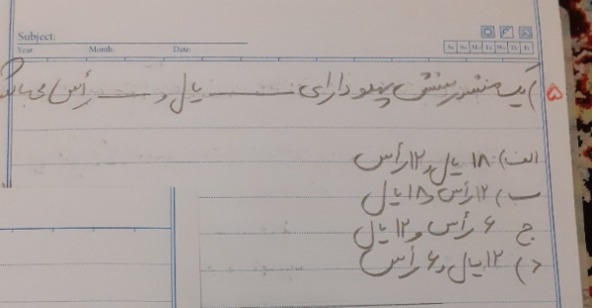 Subject:
Year Month: Date:
Sa Su Mo Tu We Th Fr
۵) یک منشور شش پهلو دارای ـــــ یال و ـــــ رأس می باشد
الف) ۱۸ یال و ۱۲ رأس
ب) ۱۲ رأس و ۱۸ یال
ج ۶ رأس و ۱۲ یال
د) ۱۲ یال و ۶ رأس